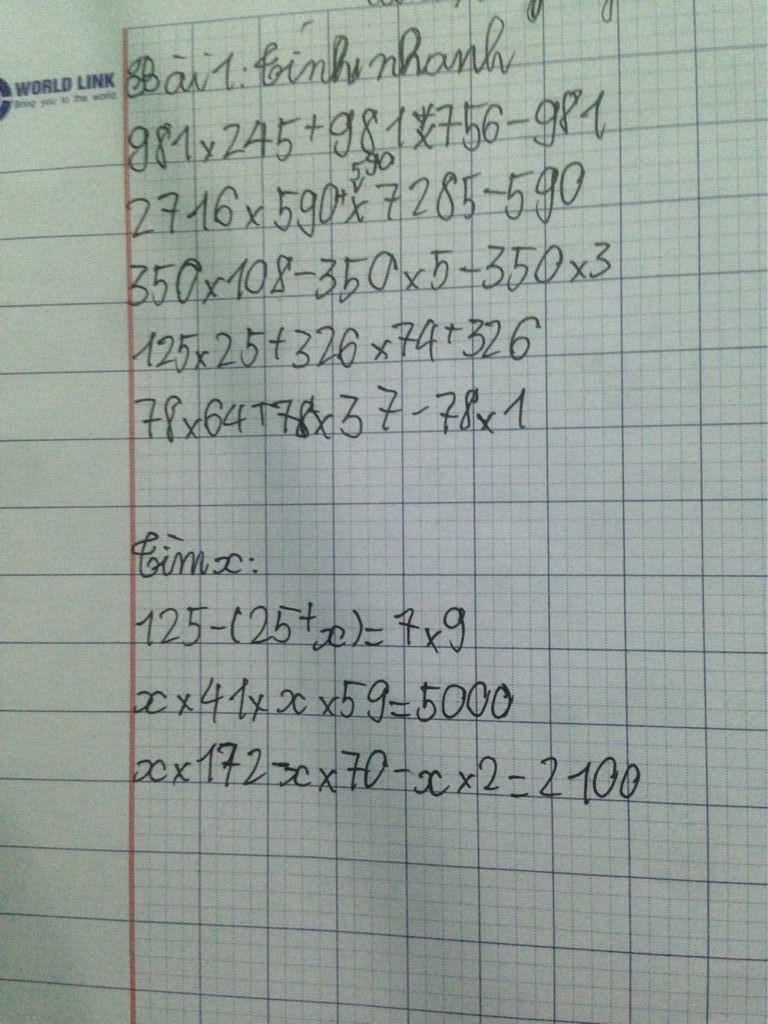 WORLD LINK
Bring you to the world
Bài 1: tính nhanh
981 x 245 + 981 x 756 - 981
2716 x 590 + 590 x 7285 - 590
350 x 108 - 350 x 5 - 350 x 3
125 x 25 + 326 x 74 + 326
78 x 64 + 78 x 37 - 78 x 1
tìm x:
125 - (25 + x) = 7 x 9
x x 41 x x x 59 = 5000
x x 172 - x x 70 - x x 2 = 2100